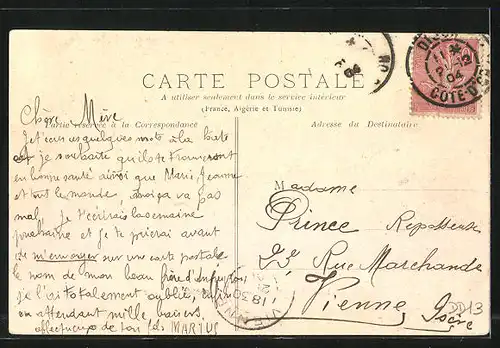 CARTE POSTALE
A utiliser seulement dans le service intérieur
(France, Algérie et Tunisie)
Partie réservée à la Correspondance
Adresse du Destinataire
Chère Mère
Je t'écris quelques mots à la hâte
et je souhaite qu'ils te trouveront
en bonne santé ainsi que Marie Jeanne
et tout le monde, moi ça va pas
mal, je t'écrirais la semaine
prochaine et je te prierai avant
de m'envoyer sur une carte postale
le nom de mon beau frère
je l'ai totalement oublié,
en attendant mille baisers.
affectueux de ton fils MARIUS
Madame
Prince Repasseuse
Rue Marchande
Vienne, Isère
DIJON
11 12
04
COTE-D'OR
04
VIENNE
18
DD13